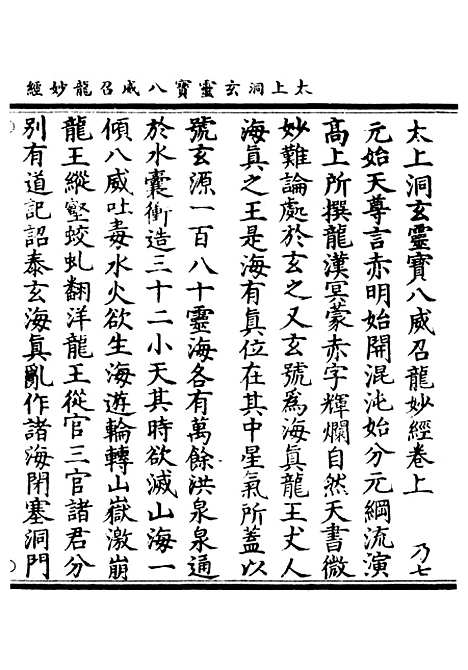 太上洞玄靈寶八威召龍妙經
太上洞玄靈寶八威召龍妙經卷上 乃七
元始天尊言赤明始開混沌始分元綱流演
高上所撰龍漢冥蒙赤字輝爛自然天書微
妙難論處於玄之又玄號爲海真龍王丈人
海真之王是海有真位在其中星氣所蓋以
號玄源一百八十靈海各有萬餘洪泉泉通
於水囊衝造三十二小天其時欲滅山海一
傾八威吐毒水火欲生海遊輪轉山嶽激崩
龍王縱壑蛟虬翻洋龍王從官三官諸君分
別有道記詔泰玄海真亂作諸海閉塞洞門